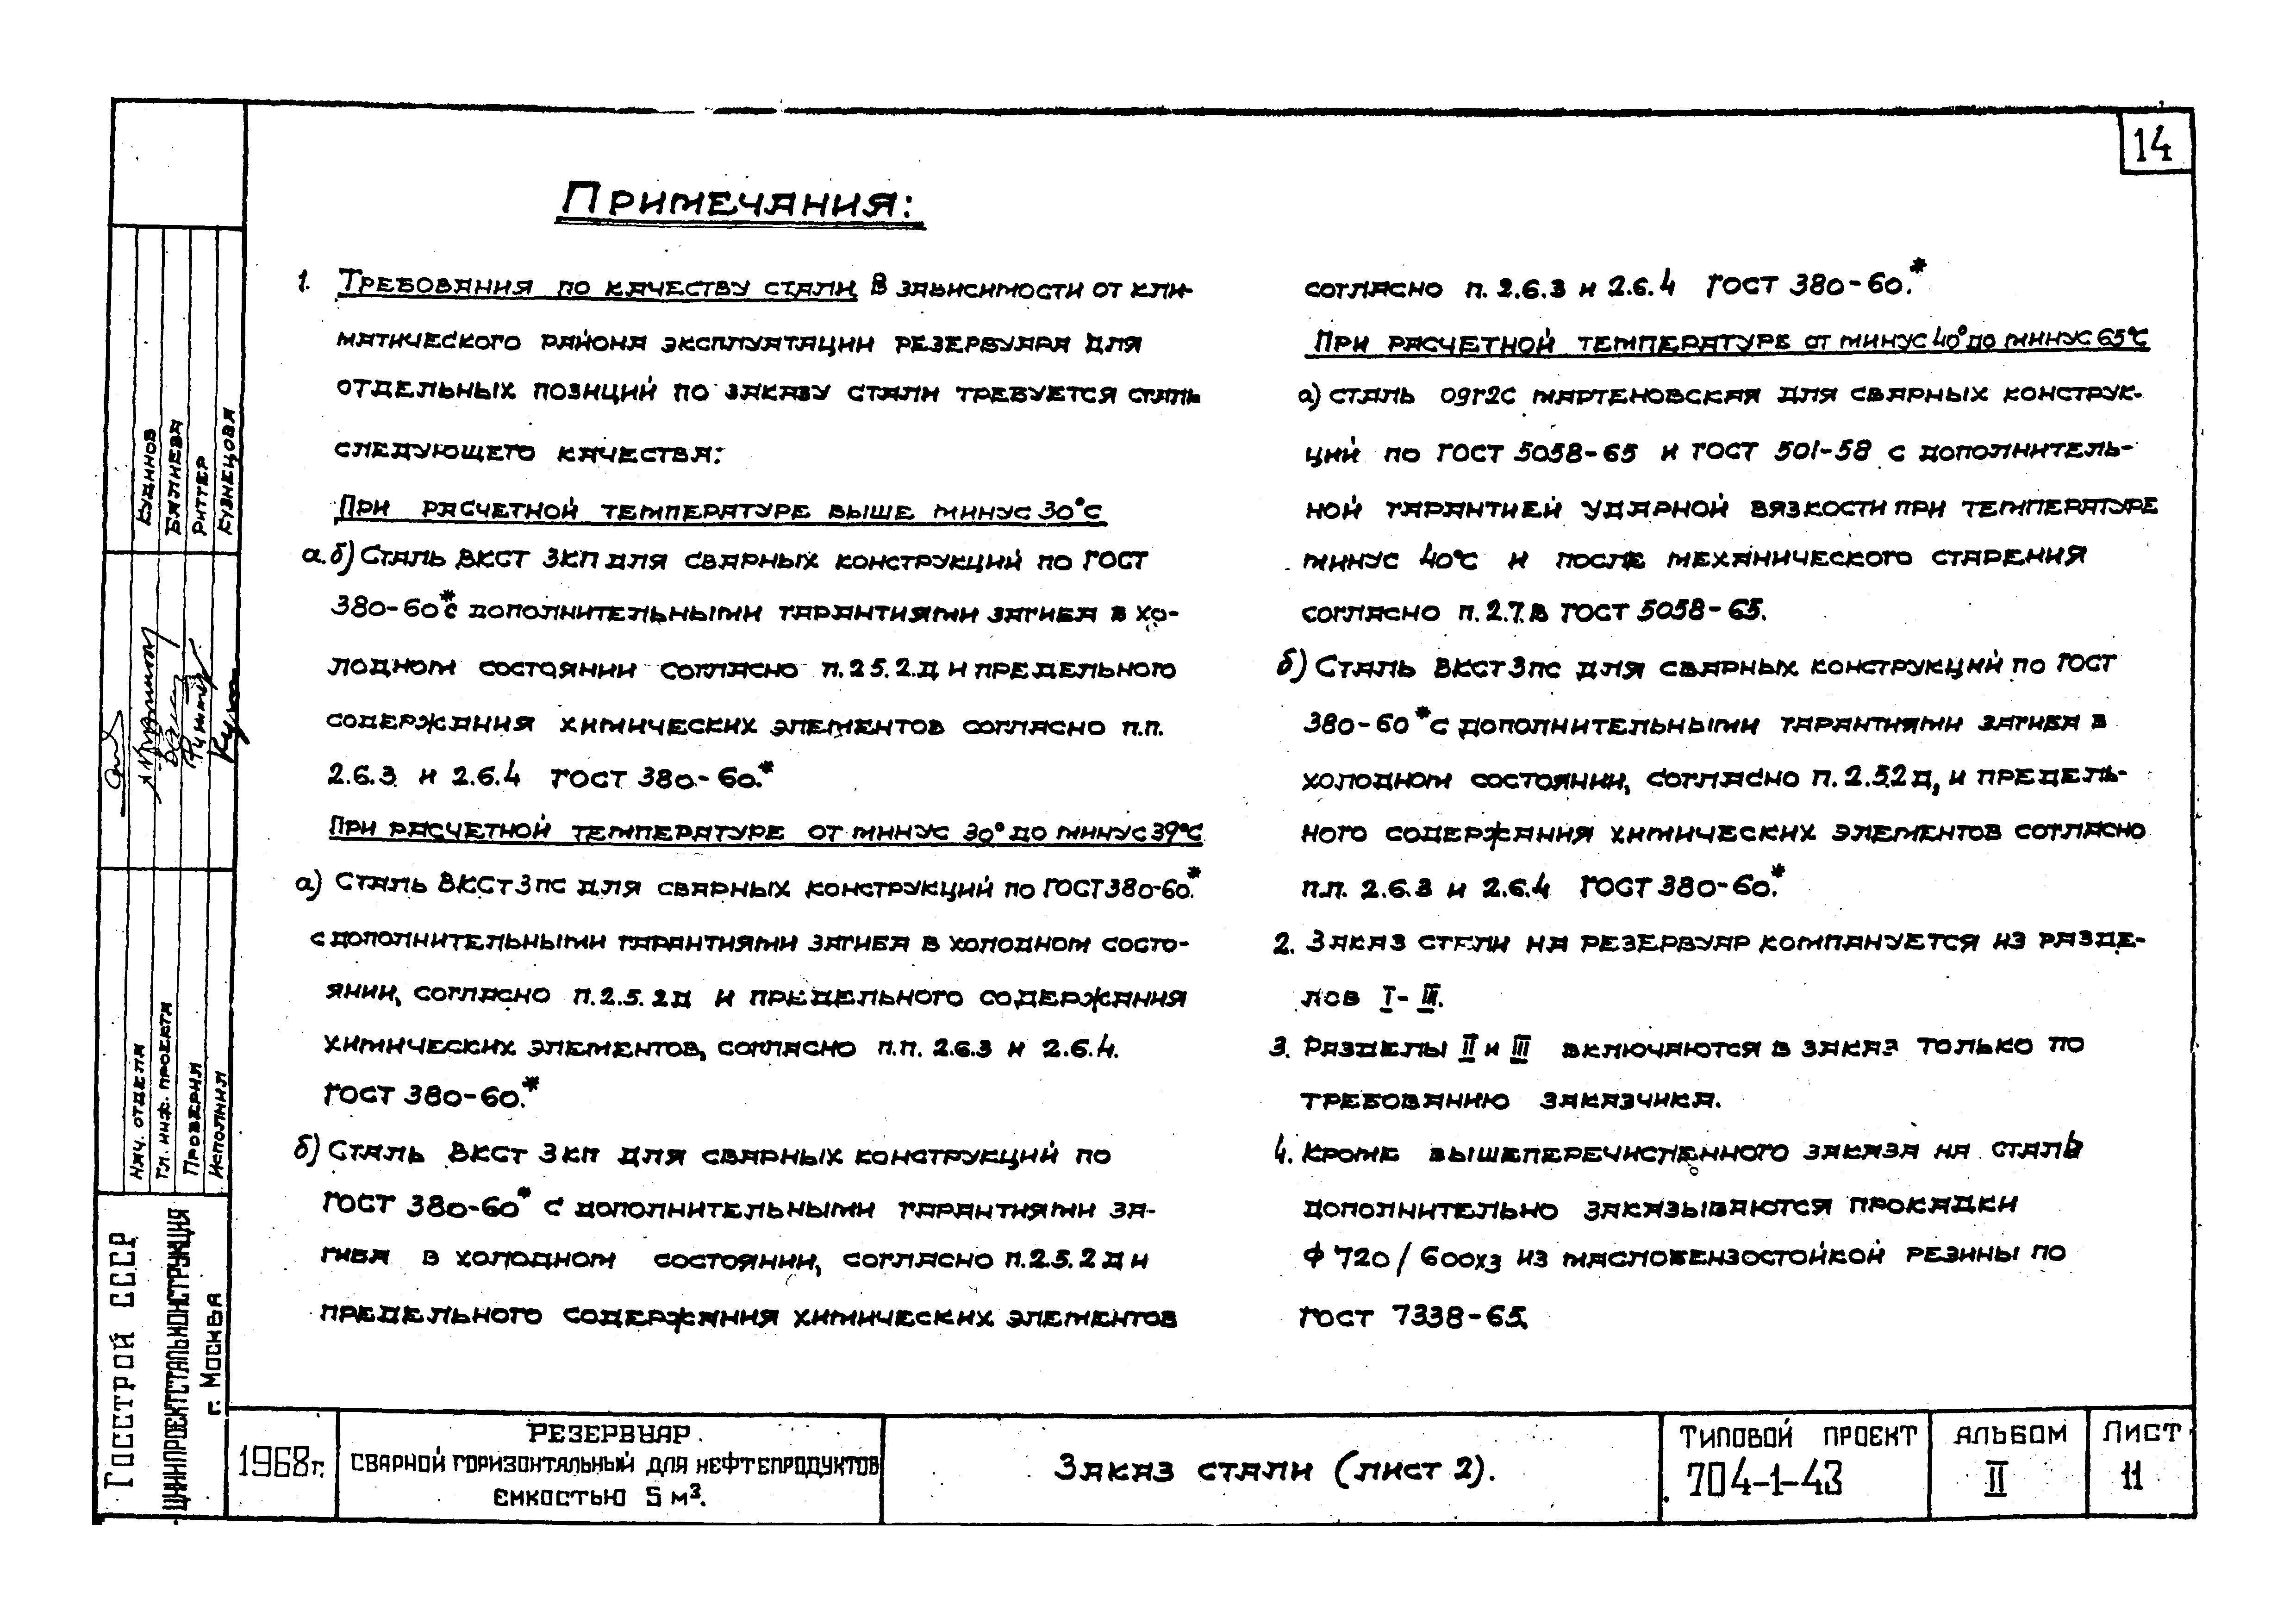 14
Примечания:
1. Требования по качеству стали в зависимости от кли-
матического района эксплуатации резервуара для
отдельных позиций по заказу стали требуется сталь
следующего качества:
При расчетной температуре выше минус 30°С
а.б) Сталь ВКСТ 3кп для сварных конструкций по ГОСТ
380-60* с дополнительными гарантиями загиба в хо-
лодном состоянии согласно п. 2 5.2.д и предельного
содержания химических элементов согласно п.п.
2.6.3 и 2.6.4 ГОСТ 380-60.*
При расчетной температуре от минус 30° до минус 39°С
а) Сталь ВКСТ3пс для сварных конструкций по ГОСТ 380-60.*
с дополнительными гарантиями загиба в холодном состо-
янии, согласно п.2.5.2д и предельного содержания
химических элементов, согласно п.п. 2.6.3 и 2.6.4.
ГОСТ 380-60.*
б) Сталь ВКСТ 3кп для сварных конструкций по
ГОСТ 380-60* с дополнительными гарантиями за-
гиба в холодном состоянии, согласно п.2.5.2д и
предельного содержания химических элементов
согласно п. 2.6.3 и 2.6.4 ГОСТ 380-60.*
При расчетной температуре от минус 40° до минус 65°С
а) сталь 09г2с мартеновская для сварных конструк-
ций по ГОСТ 5058-65 и ГОСТ 501-58 с дополнитель-
ной гарантией ударной вязкости при температуре
минус 40°С и после механического старения
согласно п. 2.7.в ГОСТ 5058-65.
б) Сталь ВКСТ3пс для сварных конструкций по ГОСТ
380-60* с дополнительными гарантиями загиба в
холодном состоянии, согласно п. 2.5.2д, и предель-
ного содержания химических элементов согласно
п.п. 2.6.3 и 2.6.4 ГОСТ 380-60.*
2. Заказ стали на резервуар компануется из разде-
лов I-III.
3. Разделы II и III включаются в заказ только по
требованию заказчика.
4. Кроме вышеперечисленного заказа на сталь
дополнительно заказываются прокладки
ф 720/600х3 из маслобензостойкой резины по
ГОСТ 7338-65.
Кудинов
Балнева
Риттер
Кузнецова
Нач. отдела
Гл. инж. проекта
Проверил
Исполнил
Госстрой СССР
ЦНИИПРОЕКТСТАЛЬКОНСТРУКЦИЯ
г. Москва
1968г.
Резервуар
сварной горизонтальный для нефтепродуктов
емкостью 5 м³.
Заказ стали (лист 2).
Типовой проект
704-1-43
Альбом
II
Лист
11